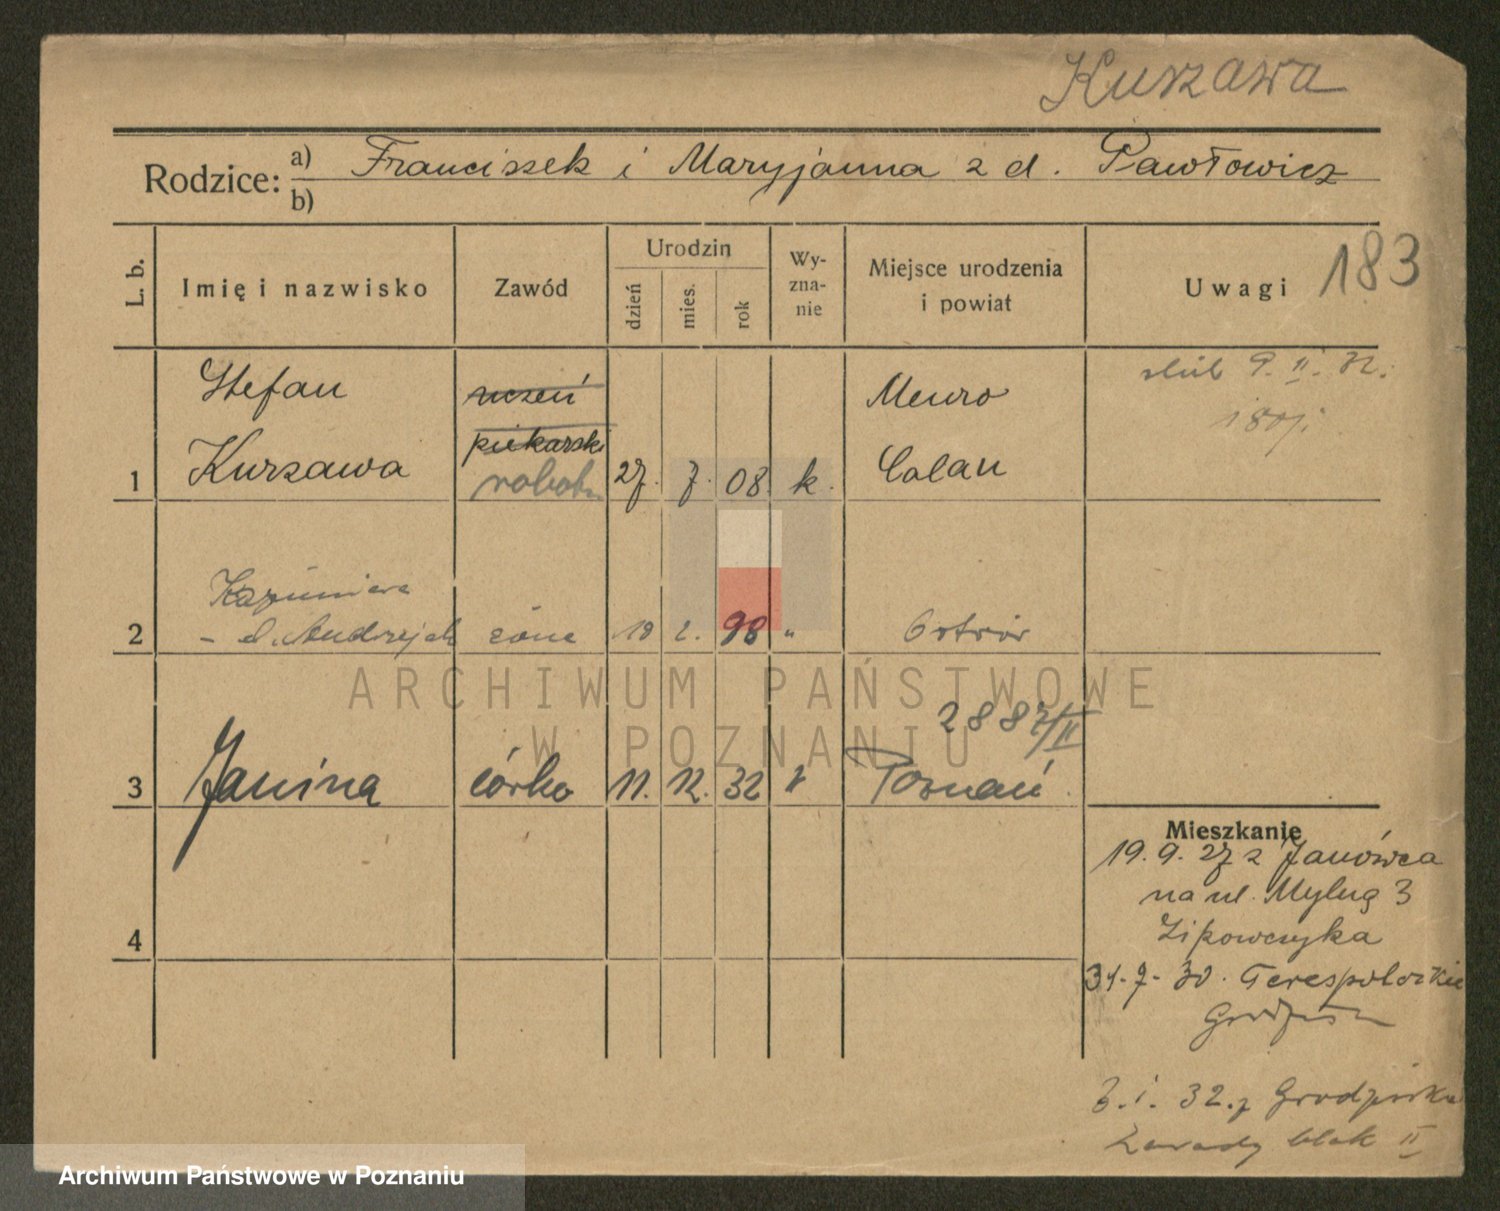 Kurzawa
Rodzice: a) Franciszek i Maryjanna z d. Pawłowicz
b)
L. b.
Imię i nazwisko
Zawód
Urodzin
dzień
mies.
rok
Wy-
zna-
nie
Miejsce urodzenia
i powiat
Uwagi
183
Stefan
uczeń
Meuro
ślub 9. II. 32.
piekarski
1 Kurzawa
robotn
27. 7. 08. k.
Calau
Kazimiera
2 - d. Andrzejak żona 19 2. 98 " Ostrów
2887/II
3 Janina córka 11. 12. 32 Poznań.
4
Mieszkanie
19. 9. 27 z Janówca
na ul. Mylną 3
31-7-30. Terespolorkie
3. I. 32. z Grodziska
Zawady blok II
ARCHIWUM PAŃSTWOWE
W POZNANIU
Archiwum Państwowe w Poznaniu